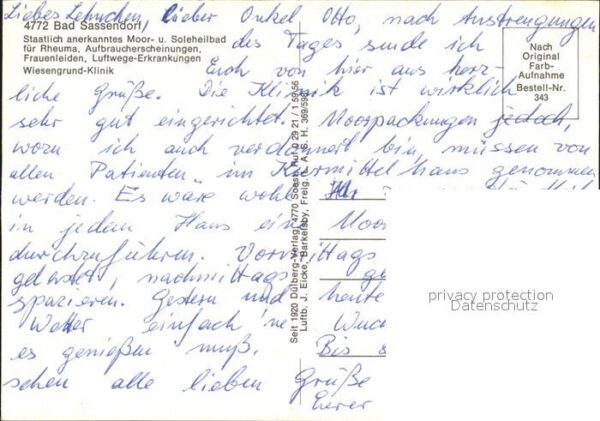 Liebes Lehnchen, lieber Onkel Otto, nach Anstrengungen
4772 Bad Sassendorf
Staatlich anerkanntes Moor- u. Soleheilbad
für Rheuma, Aufbraucherscheinungen,
Frauenleiden, Luftwege-Erkrankungen
Wiesengrund-Klinik
des Tages sende ich
Euch von hier aus herz-
liche Grüße. Die Klinik ist wirklich
sehr gut eingerichtet. Moorpackungen jedoch,
wozu ich auch verdonnert bin, müssen von
allen Patienten im Kurmittelhaus genommen
werden. Es wäre wohl
in jedem Haus eine Moor
durchzuführen. Vormittags
geturnt, nachmittags
spazieren. Gestern und heute
Wetter einfach 'ne
es genießen muß. Bis
sehen alle lieben Grüße
Eurer
Nach
Original
Farb-
Aufnahme
Bestell-Nr.
343
Seit 1920 Dülberg-Verlag, 4770 Soest, Ruf 0 29 21 / 1 59 56
Luftb. J. Eicke, Barkelsby, Freig. n. L. A. S. H. 369/593
privacy protection
Datenschutz